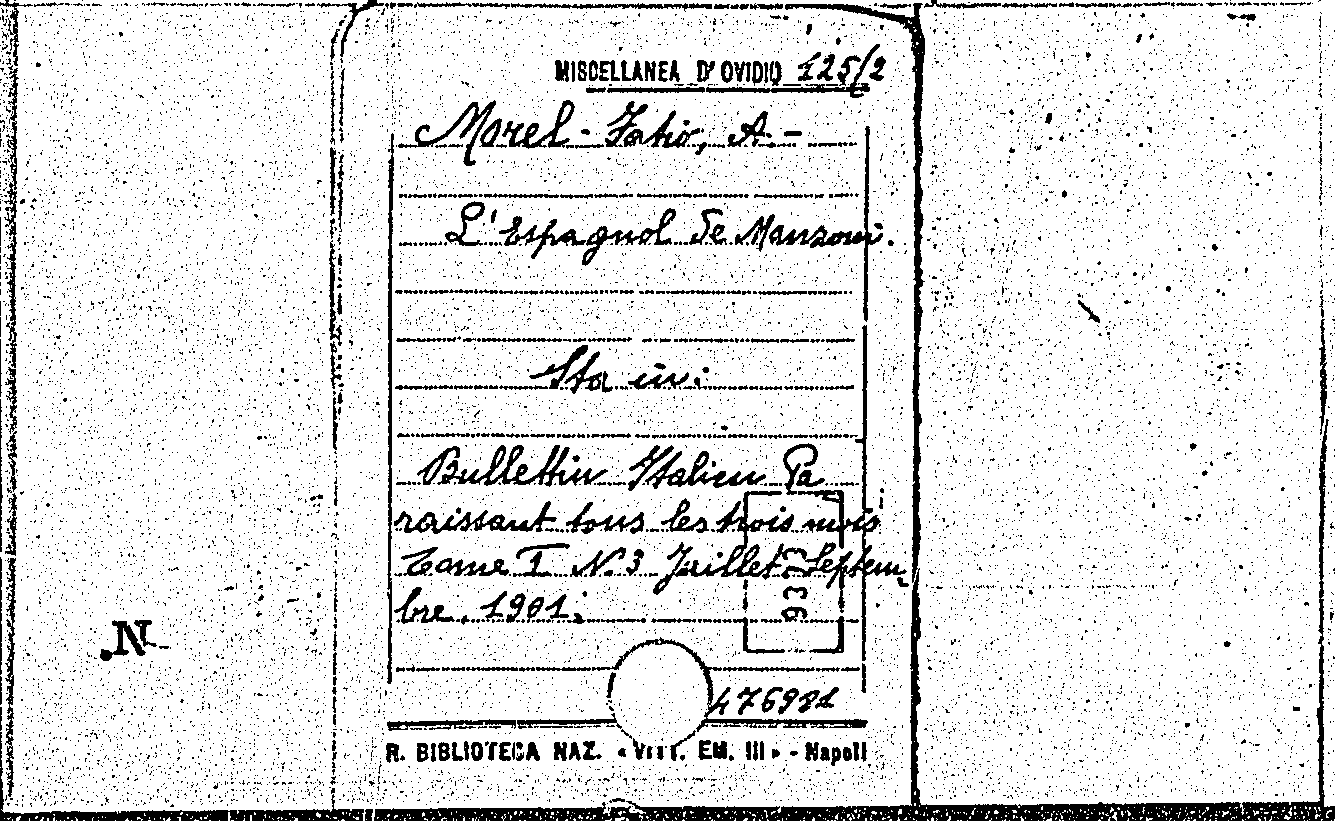 MISCELLANEA D'OVIDIO 125/2
Morel-Fatio, A.-
L'Espagnol de Manzoni.
Sta in:
Bullettin Italien Pa
raissant tous les trois mois
Tome I N.3 Juillet-Septem-
bre. 1901.
476981
R. BIBLIOTECA NAZ. «VITT. EM. III» - Napoli
.N